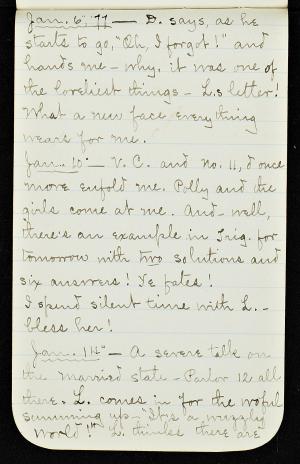 Jan. 6, '77 — D. says, as he
starts to go, "Oh, I forgot!" and
hands me — why, it was one of
the loveliest things — L.s letter!
What a new face everything
wears for me.
Jan. 10 — V. C. and no. 11, once
more enfold me. Polly and the
girls come at me. And — well,
there's an example in Trig. for
tomorrow with two solutions and
six answers! Ye fates!
I spend silent time with L. —
bless her!
Jan. 14 — A severe talk on
the married state — Parlor 12 all
there. L. comes in for the woful
summing up — "It's a wriggly
world!" L. thinks there are